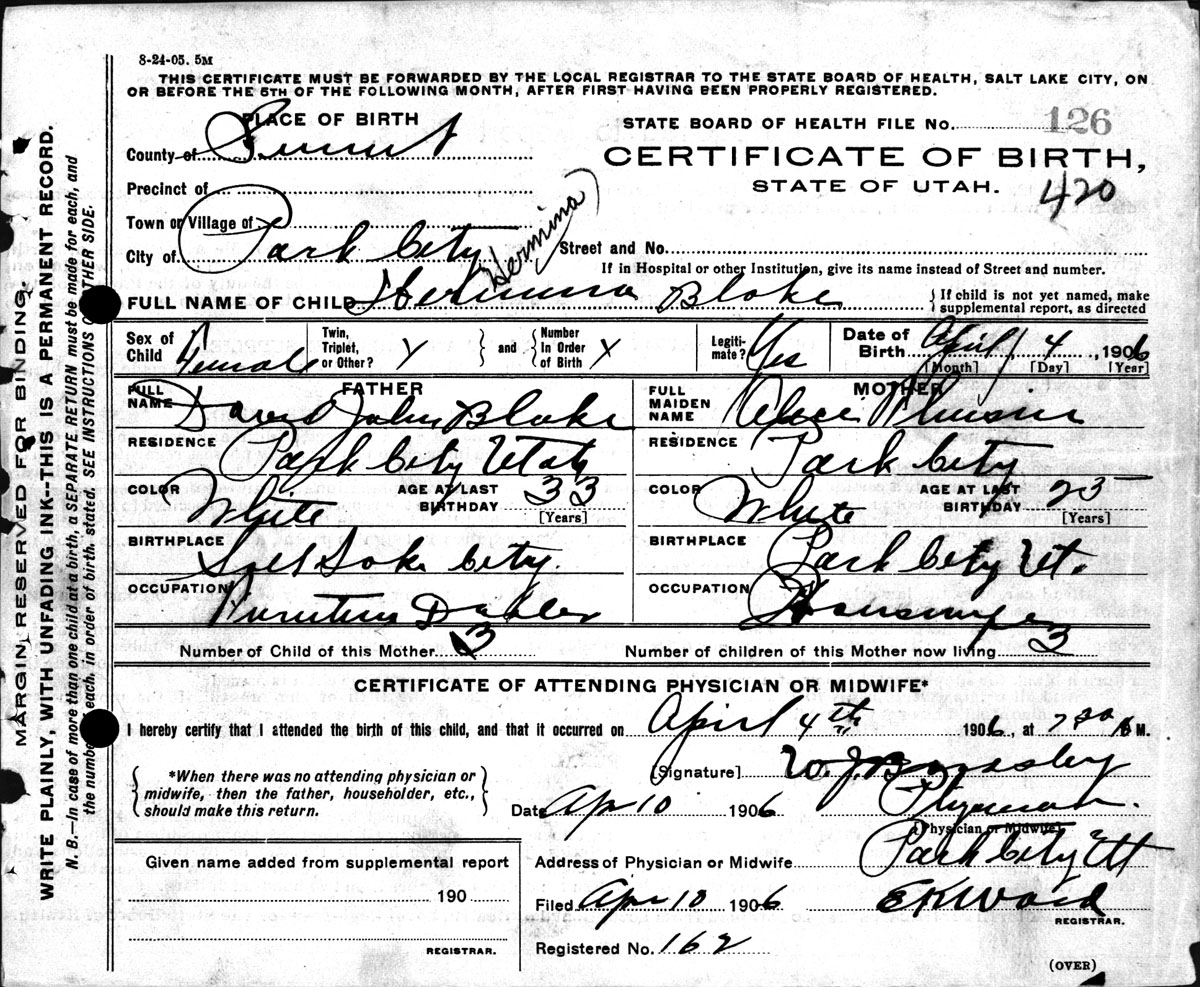 8-24-05. 5M
THIS CERTIFICATE MUST BE FORWARDED BY THE LOCAL REGISTRAR TO THE STATE BOARD OF HEALTH, SALT LAKE CITY, ON
OR BEFORE THE 5TH OF THE FOLLOWING MONTH, AFTER FIRST HAVING BEEN PROPERLY REGISTERED.
PLACE OF BIRTH
STATE BOARD OF HEALTH FILE No. 126
County of Summit
CERTIFICATE OF BIRTH,
STATE OF UTAH.
420
Precinct of
Town or Village of
City of Park City
Hermina
Street and No.
If in Hospital or other Institution, give its name instead of Street and number.
FULL NAME OF CHILD Hermina Blake
If child is not yet named, make
supplemental report, as directed
Sex of Child Female
Twin, Triplet, or Other?
and
Number In Order of Birth
Legiti-mate? Yes
Date of Birth April 4, 1906
[Month] [Day] [Year]
FATHER
FULL NAME David John Blake
RESIDENCE Park City Utah
COLOR White
AGE AT LAST BIRTHDAY 33
[Years]
BIRTHPLACE Salt Lake City.
OCCUPATION
MOTHER
FULL MAIDEN NAME Alice
RESIDENCE Park City
COLOR White
AGE AT LAST BIRTHDAY 25
[Years]
BIRTHPLACE Park City Ut.
OCCUPATION Housewife
Number of Child of this Mother 3
Number of children of this Mother now living 3
CERTIFICATE OF ATTENDING PHYSICIAN OR MIDWIFE*
I hereby certify that I attended the birth of this child, and that it occurred on April 4th, 1906, at 7 30 M.
*When there was no attending physician or
midwife, then the father, householder, etc.,
should make this return.
[Signature] W. J.
Physician.
[Physician or Midwife]
Date Apr 10 1906
Given name added from supplemental report
190
REGISTRAR.
Address of Physician or Midwife Park City Ut
Filed Apr 10 1906 E K Ward
REGISTRAR.
Registered No. 162
(OVER)
MARGIN RESERVED FOR BINDING.
WRITE PLAINLY, WITH UNFADING INK--THIS IS A PERMANENT RECORD.
N. B.—In case of more than one child at a birth, a SEPARATE RETURN must be made for each, and
the number each, in order of birth stated. SEE INSTRUCTIONS OTHER SIDE.